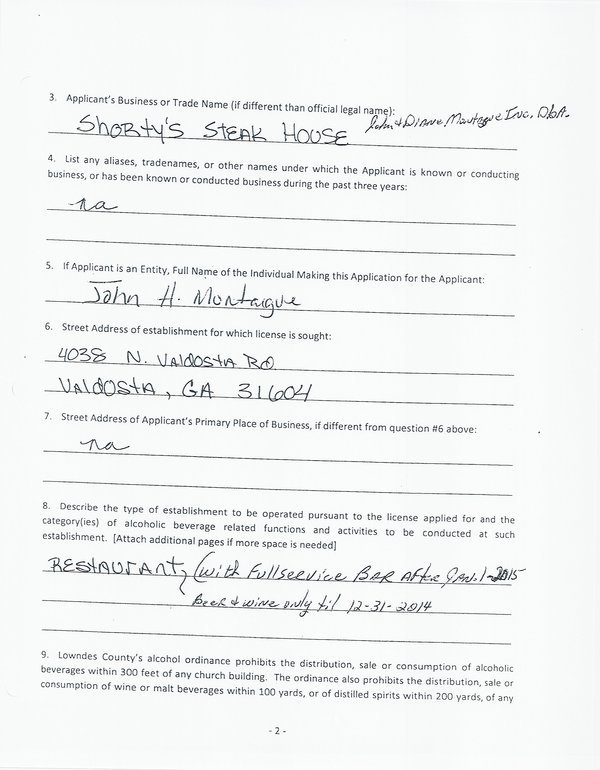 3. Applicant's Business or Trade Name (if different than official legal name):
Shorty's Steak House John & Dianne Montague Inc. DbA.
4. List any aliases, tradenames, or other names under which the Applicant is known or conducting
business, or has been known or conducted business during the past three years:
na
5. If Applicant is an Entity, Full Name of the Individual Making this Application for the Applicant:
John H. Montague
6. Street Address of establishment for which license is sought:
4038 N. Valdosta RD
Valdosta, GA 31604
7. Street Address of Applicant's Primary Place of Business, if different from question #6 above:
na
8. Describe the type of establishment to be operated pursuant to the license applied for and the
category(ies) of alcoholic beverage related functions and activities to be conducted at such
establishment. [Attach additional pages if more space is needed]
Restaurant, (with Fullservice Bar after Jan. 1-2015
Beer & wine only til 12-31-2014
9. Lowndes County's alcohol ordinance prohibits the distribution, sale or consumption of alcoholic
beverages within 300 feet of any church building. The ordinance also prohibits the distribution, sale or
consumption of wine or malt beverages within 100 yards, or of distilled spirits within 200 yards, of any
- 2 -